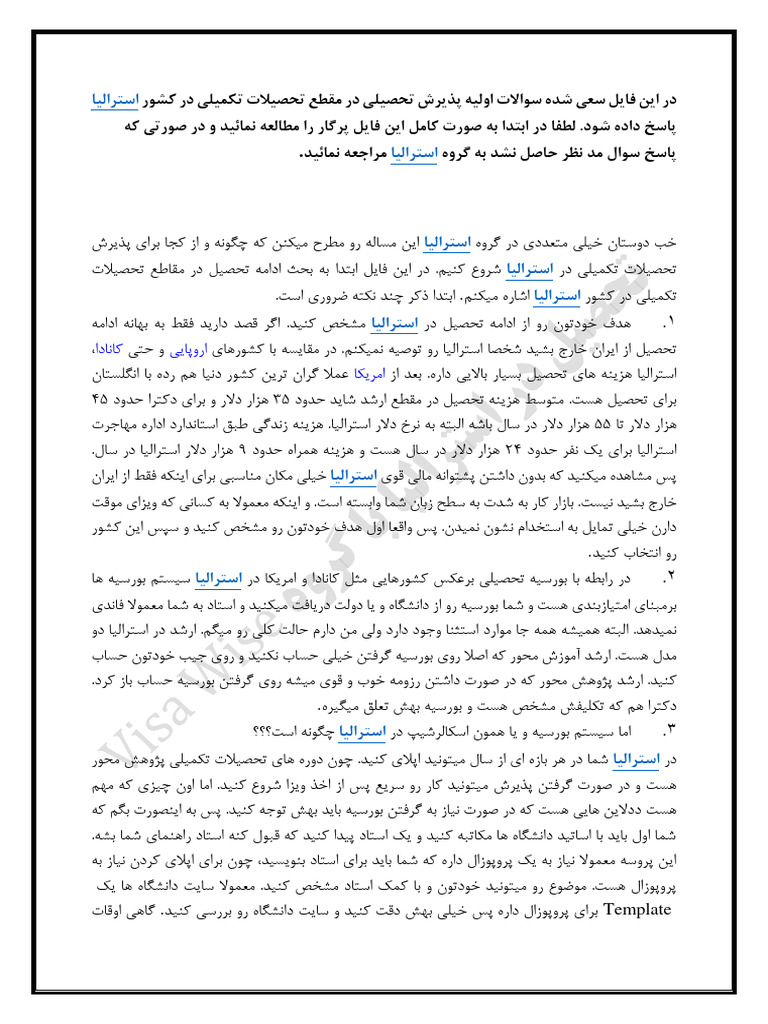 در این فایل سعی شده سوالات اولیه پذیرش تحصیلی در مقطع تحصیلات تکمیلی در کشور استرالیا
پاسخ داده شود. لطفا در ابتدا به صورت کامل این فایل پرگار را مطالعه نمائید و در صورتی که
پاسخ سوال مد نظر حاصل نشد به گروه استرالیا مراجعه نمائید.
خب دوستان خیلی متعددی در گروه استرالیا این مساله رو مطرح میکنن که چگونه و از کجا برای پذیرش
تحصیلات تکمیلی در استرالیا شروع کنیم. در این فایل ابتدا به بحث ادامه تحصیل در مقاطع تحصیلات
تکمیلی در کشور استرالیا اشاره میکنم. ابتدا ذکر چند نکته ضروری است.
۱. هدف خودتون رو از ادامه تحصیل در استرالیا مشخص کنید. اگر قصد دارید فقط به بهانه ادامه
تحصیل از ایران خارج بشید شخصا استرالیا رو توصیه نمیکنم. در مقایسه با کشورهای اروپایی و حتی کانادا،
استرالیا هزینه های تحصیل بسیار بالایی داره. بعد از امریکا عملا گران ترین کشور دنیا هم رده با انگلستان
برای تحصیل هست. متوسط هزینه تحصیل در مقطع ارشد شاید حدود ۳۵ هزار دلار و برای دکترا حدود ۴۵
هزار دلار تا ۵۵ هزار دلار در سال باشه البته به نرخ دلار استرالیا. هزینه زندگی طبق استاندارد اداره مهاجرت
استرالیا برای یک نفر حدود ۲۴ هزار دلار در سال هست و هزینه همراه حدود ۹ هزار دلار استرالیا در سال.
پس مشاهده میکنید که بدون داشتن پشتوانه مالی قوی استرالیا خیلی مکان مناسبی برای اینکه فقط از ایران
خارج بشید نیست. بازار کار به شدت به سطح زبان شما وابسته است. و اینکه معمولا به کسانی که ویزای موقت
دارن خیلی تمایل به استخدام نشون نمیدن. پس واقعا اول هدف خودتون رو مشخص کنید و سپس این کشور
رو انتخاب کنید.
۲. در رابطه با بورسیه تحصیلی برعکس کشورهایی مثل کانادا و امریکا در استرالیا سیستم بورسیه ها
برمبنای امتیازبندی هست و شما بورسیه رو از دانشگاه و یا دولت دریافت میکنید و استاد به شما معمولا فاندی
نمیدهد. البته همیشه همه جا موارد استثنا وجود دارد ولی من دارم حالت کلی رو میگم. ارشد در استرالیا دو
مدل هست. ارشد آموزش محور که اصلا روی بورسیه گرفتن خیلی حساب نکنید و روی جیب خودتون حساب
کنید. ارشد پژوهش محور که در صورت داشتن رزومه خوب و قوی میشه روی گرفتن بورسیه حساب باز کرد.
دکترا هم که تکلیفش مشخص هست و بورسیه بهش تعلق میگیره.
۳. اما سیستم بورسیه و یا همون اسکالرشیپ در استرالیا چگونه است؟؟؟
در استرالیا شما در هر بازه ای از سال میتونید اپلای کنید. چون دوره های تحصیلات تکمیلی پژوهش محور
هست و در صورت گرفتن پذیرش میتونید کار رو سریع پس از اخذ ویزا شروع کنید. اما اون چیزی که مهم
هست ددلاین هایی هست که در صورت نیاز به گرفتن بورسیه باید بهش توجه کنید. پس به اینصورت بگم که
شما اول باید با اساتید دانشگاه ها مکاتبه کنید و یک استاد پیدا کنید که قبول کنه استاد راهنمای شما بشه.
این پروسه معمولا نیاز به یک پروپوزال داره که شما باید برای استاد بنویسید، چون برای اپلای کردن نیاز به
پروپوزال هست. موضوع رو میتونید خودتون و با کمک استاد مشخص کنید. معمولا سایت دانشگاه ها یک
Template برای پروپوزال داره پس خیلی بهش دقت کنید و سایت دانشگاه رو بررسی کنید. گاهی اوقات
تحصیل در استرالیا با گروه Visa Wise